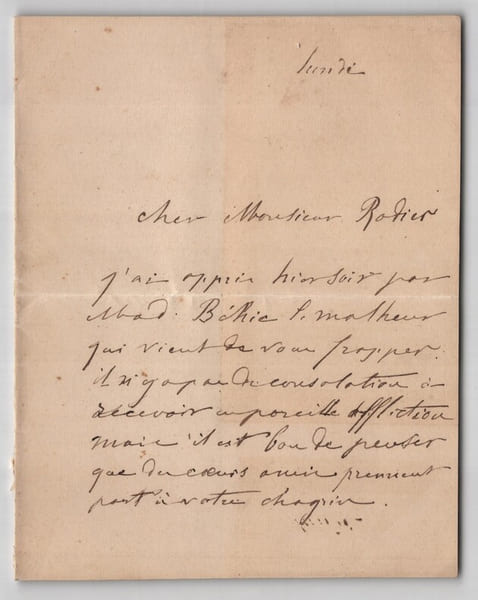 lundi
cher Monsieur Rodier
j'ai appris hier soir par
Mad. Béhic le malheur
qui vient de vous frapper.
il n'y a pas de consolation à
recevoir en pareille affliction
mais il est bon de penser
que des cœurs amis prennent
part à votre chagrin.